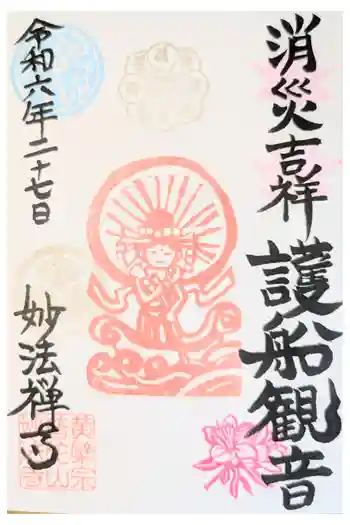 消災吉祥
護船観音
令和六年二十七日
妙法禅寺